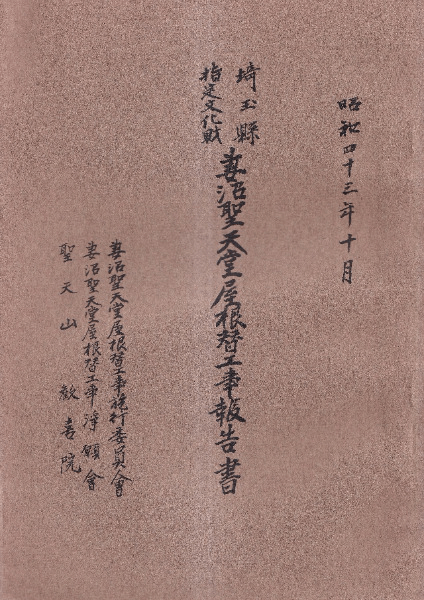 昭和四十三年十月
埼玉縣
指定文化財
妻沼聖天堂屋根替工事報告書
妻沼聖天堂屋根替工事施行委員會
妻沼聖天堂屋根替工事淨願會
聖天山 歓喜院